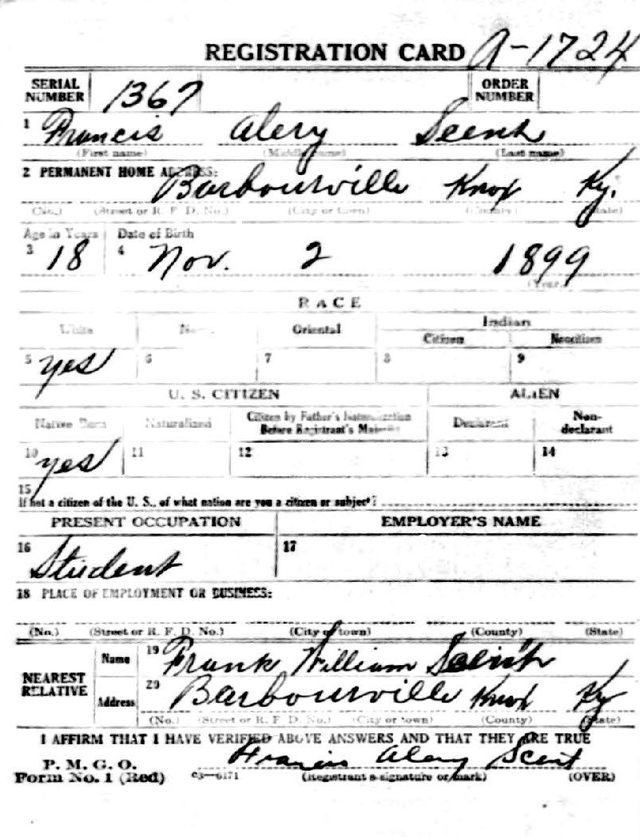 REGISTRATION CARD A-1724
SERIAL NUMBER 1367 ORDER NUMBER
1 Francis Alery
(First name) (Middle name) (Last name)
2 PERMANENT HOME ADDRESS: Barbourville Knox Ky.
(No.) (Street or R. F. D. No.) (City or town) (County) (State)
Age in Years Date of Birth
3 18 4 Nov. 2 1899
(Year)
RACE
White Oriental Indian
Citizen Noncitizen
5 yes 6 7 8 9
U. S. CITIZEN ALIEN
Native Born Naturalized Citizen by Father's Naturalization Before Registrant's Majority Declarant Non-declarant
10 yes 11 12 13 14
15
If not a citizen of the U. S., of what nation are you a citizen or subject?
PRESENT OCCUPATION EMPLOYER'S NAME
16 Student 17
18 PLACE OF EMPLOYMENT OR BUSINESS:
(No.) (Street or R. F. D. No.) (City or town) (County) (State)
NEAREST RELATIVE Name 19 Frank William
Address 20 Barbourville Knox Ky
(No.) (Street or R. F. D. No.) (City or town) (County) (State)
I AFFIRM THAT I HAVE VERIFIED ABOVE ANSWERS AND THAT THEY ARE TRUE
P. M. G. O.
Form No. 1 (Red) c3—6171 Francis Alery Scent
(Registrant's signature or mark) (OVER)